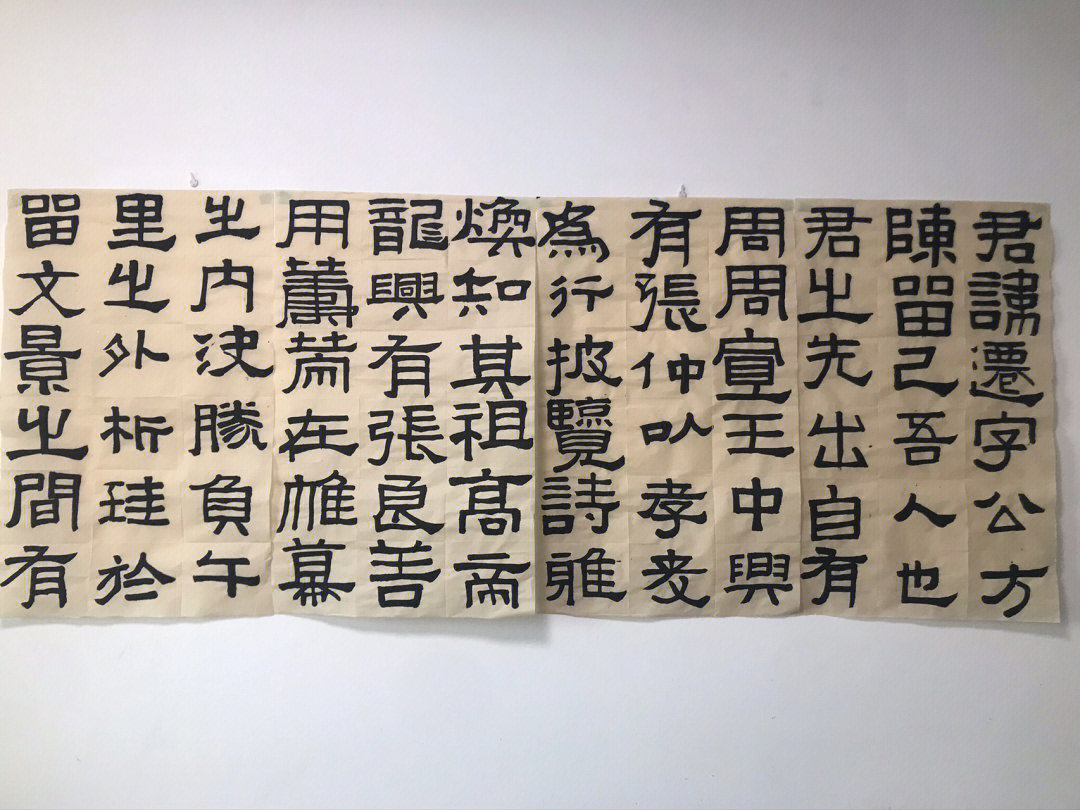 君諱遷字公方
陳留己吾人也
君之先出自有
周周宣王中興
有張仲以孝友
為行披覽詩雅
煥知其祖高帝
龍興有張良善
用籌策在帷幕
之内決勝負千
里之外析珪於
留文景之間有